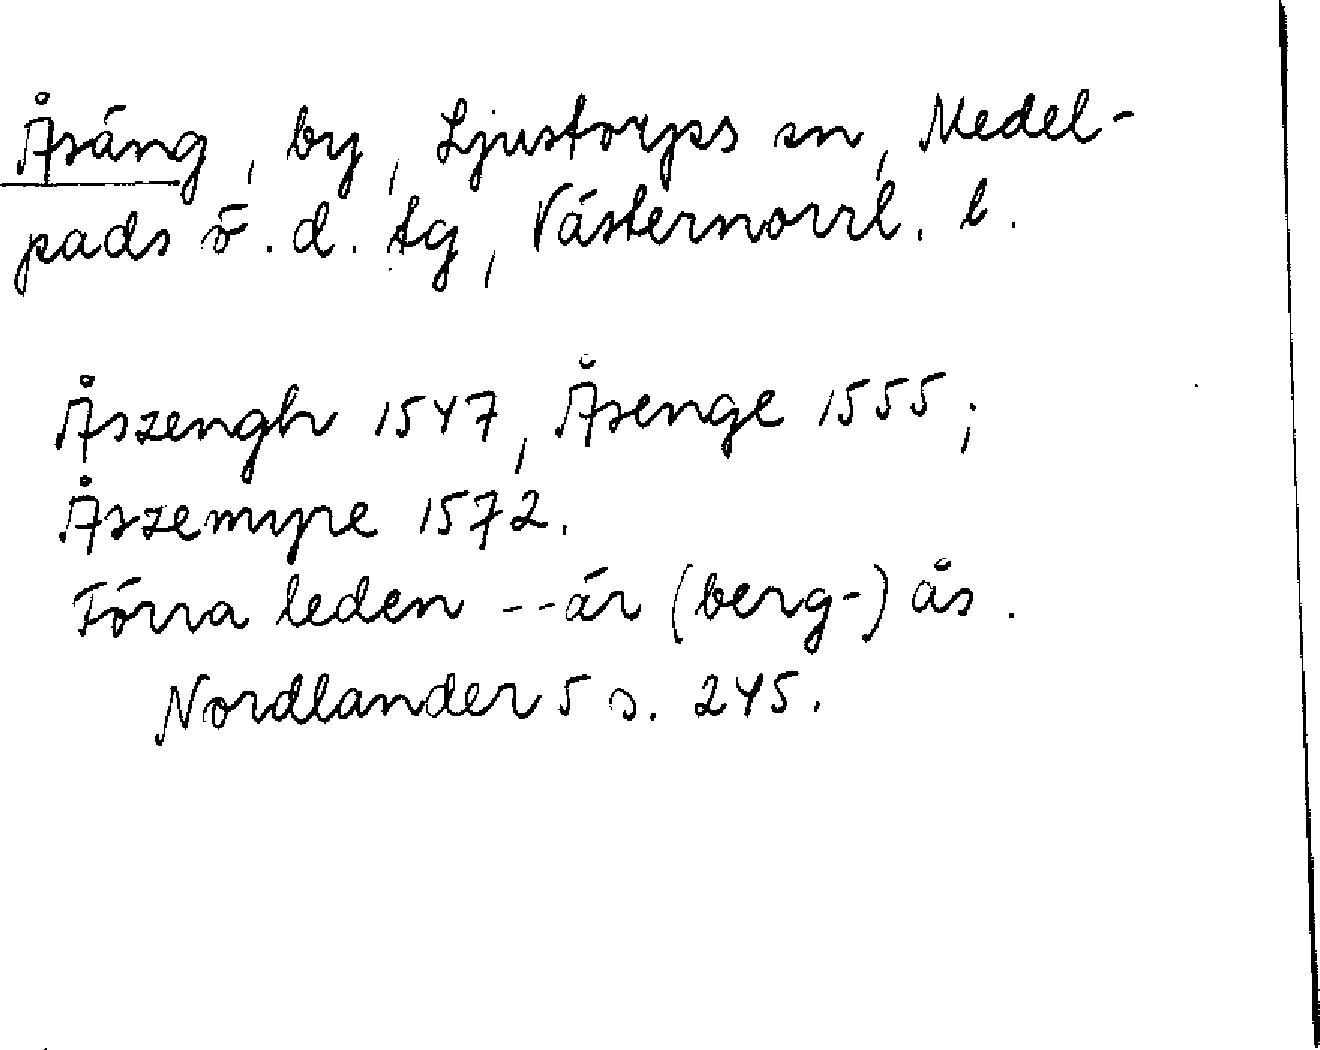 Åsäng, by, Ljustorps sn, Medel-
pads ö. d. tg, Västernorrl. l.
Åszengh 1547, Åsenge 1555;
Åszemyre 1572.
Förra leden -- är (berg-) ås.
Nordlander 5 s. 245.